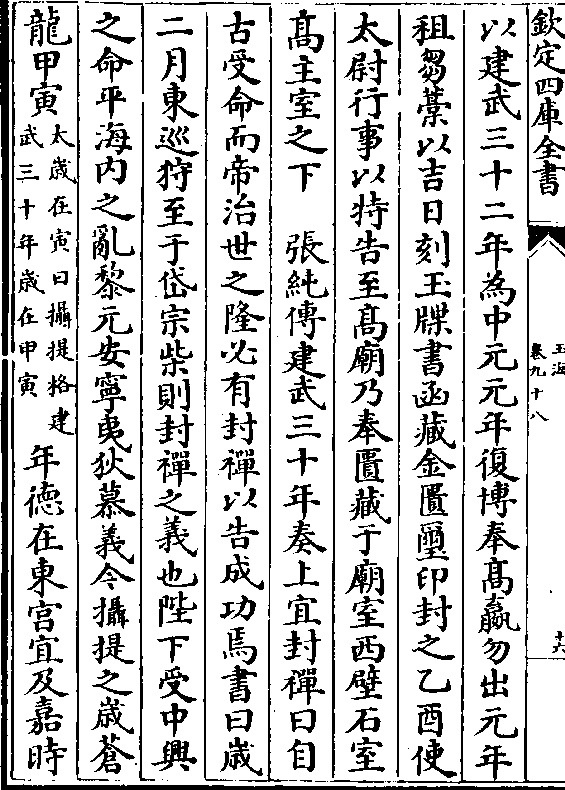 欽定四庫全書
玉海
卷九十八
十六
以建武三十二年為中元元年復博奉髙嬴勿出元年
租芻藁以吉日刻玉牒書函藏金匱璽印封之乙酉使
太尉行事以特告至髙廟乃奉匱藏于廟室西壁石室
髙主室之下　張純傳建武三十年奏上宜封禪曰自
古受命而帝治世之隆必有封禪以告成功焉書曰歳
二月東巡狩至于岱宗柴則封禪之義也陛下受中興
之命平海内之亂黎元安寧夷狄慕義今攝提之歳蒼
龍甲寅太歳在寅曰攝提格建武三十年歳在甲寅年德在東宫宜及嘉時